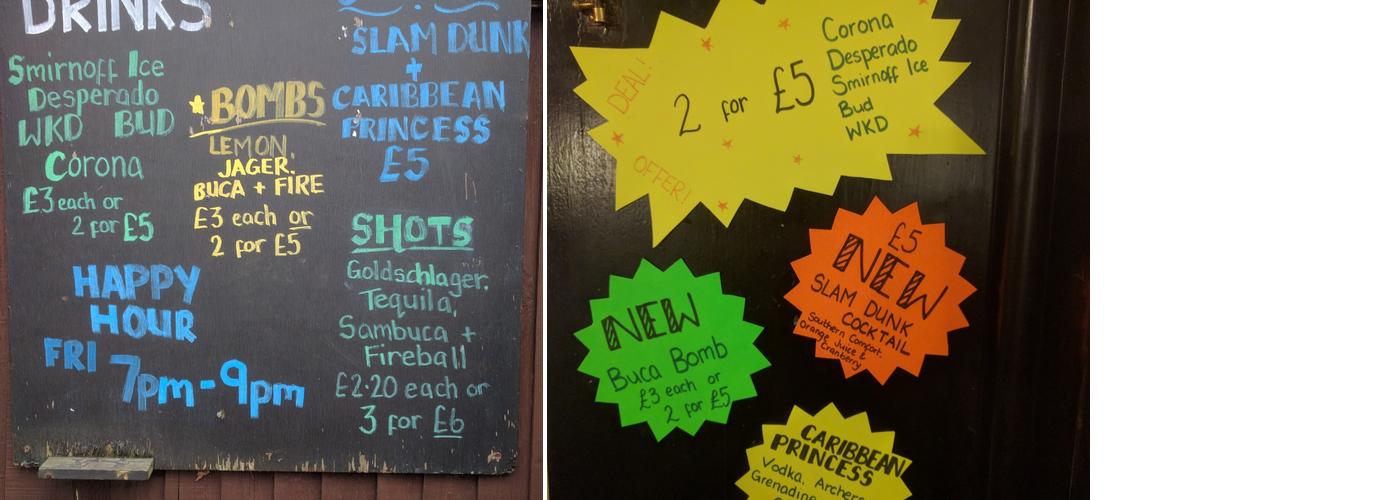 DRINKS
Smirnoff Ice
Desperado
WKD BUD
Corona
£3 each or
2 for £5
HAPPY
HOUR
FRI 7pm-9pm
BOMBS
LEMON,
JAGER,
BUCA + FIRE
£3 each or
2 for £5
SLAM DUNK
+
CARIBBEAN
PRINCESS
£5
SHOTS
Goldschlager,
Tequila,
Sambuca +
Fireball
£2.20 each or
3 for £6
DEAL!
OFFER!
2 for £5
Corona
Desperado
Smirnoff Ice
Bud
WKD
£5
NEW
SLAM DUNK
COCKTAIL
Southern Comfort,
Orange Juice &
Cranberry
NEW
Buca Bomb
£3 each or
2 for £5
CARIBBEAN
PRINCESS
Vodka, Archers
Grenadine